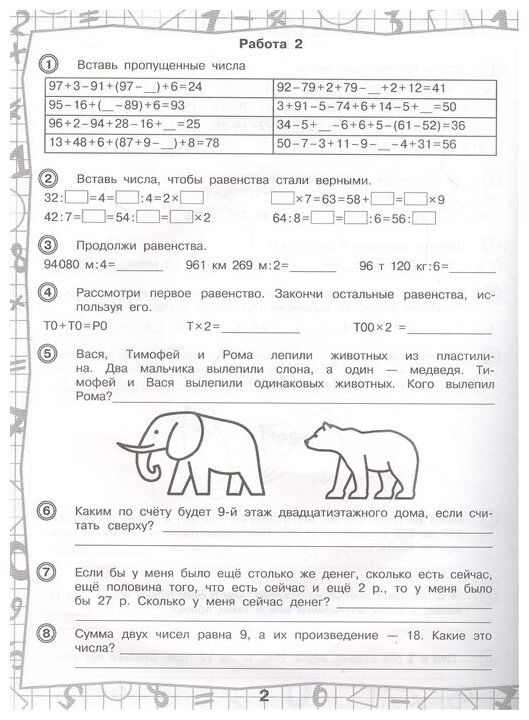 Работа 2
1 Вставь пропущенные числа
97+3−91+(97−__)+6=24 92−79+2+79−__+2+12=41
95−16+(__−89)+6=93 3+91−5−74+6+14−5+__=50
96+2−94+28−16+__=25 34−5+__−6+6+5−(61−52)=36
13+48+6+(87+9−__)+8=78 50−7−3+11−9−__−4+31=56
2 Вставь числа, чтобы равенства стали верными.
32:□=4=□:4=2×□ □×7=63=58+□=□×9
42:7=□=54:□=□×2 64:8=□=□:6=56:□
3 Продолжи равенства.
94080 м:4=______ 961 км 269 м:2=______ 96 т 120 кг:6=______
4 Рассмотри первое равенство. Закончи остальные равенства, ис-
пользуя его.
Т0+Т0=Р0 Т×2=__________ Т00×2 =__________
5 Вася, Тимофей и Рома лепили животных из пластили-
на. Два мальчика вылепили слона, а один — медведя. Ти-
мофей и Вася вылепили одинаковых животных. Кого вылепил
Рома?__________
6 Каким по счёту будет 9-й этаж двадцатиэтажного дома, если счи-
тать сверху? __________
7 Если бы у меня было ещё столько же денег, сколько есть сейчас,
ещё половина того, что есть сейчас и ещё 2 р., то у меня было
бы 27 р. Сколько у меня сейчас денег? __________
8 Сумма двух чисел равна 9, а их произведение — 18. Какие это
числа? __________
2